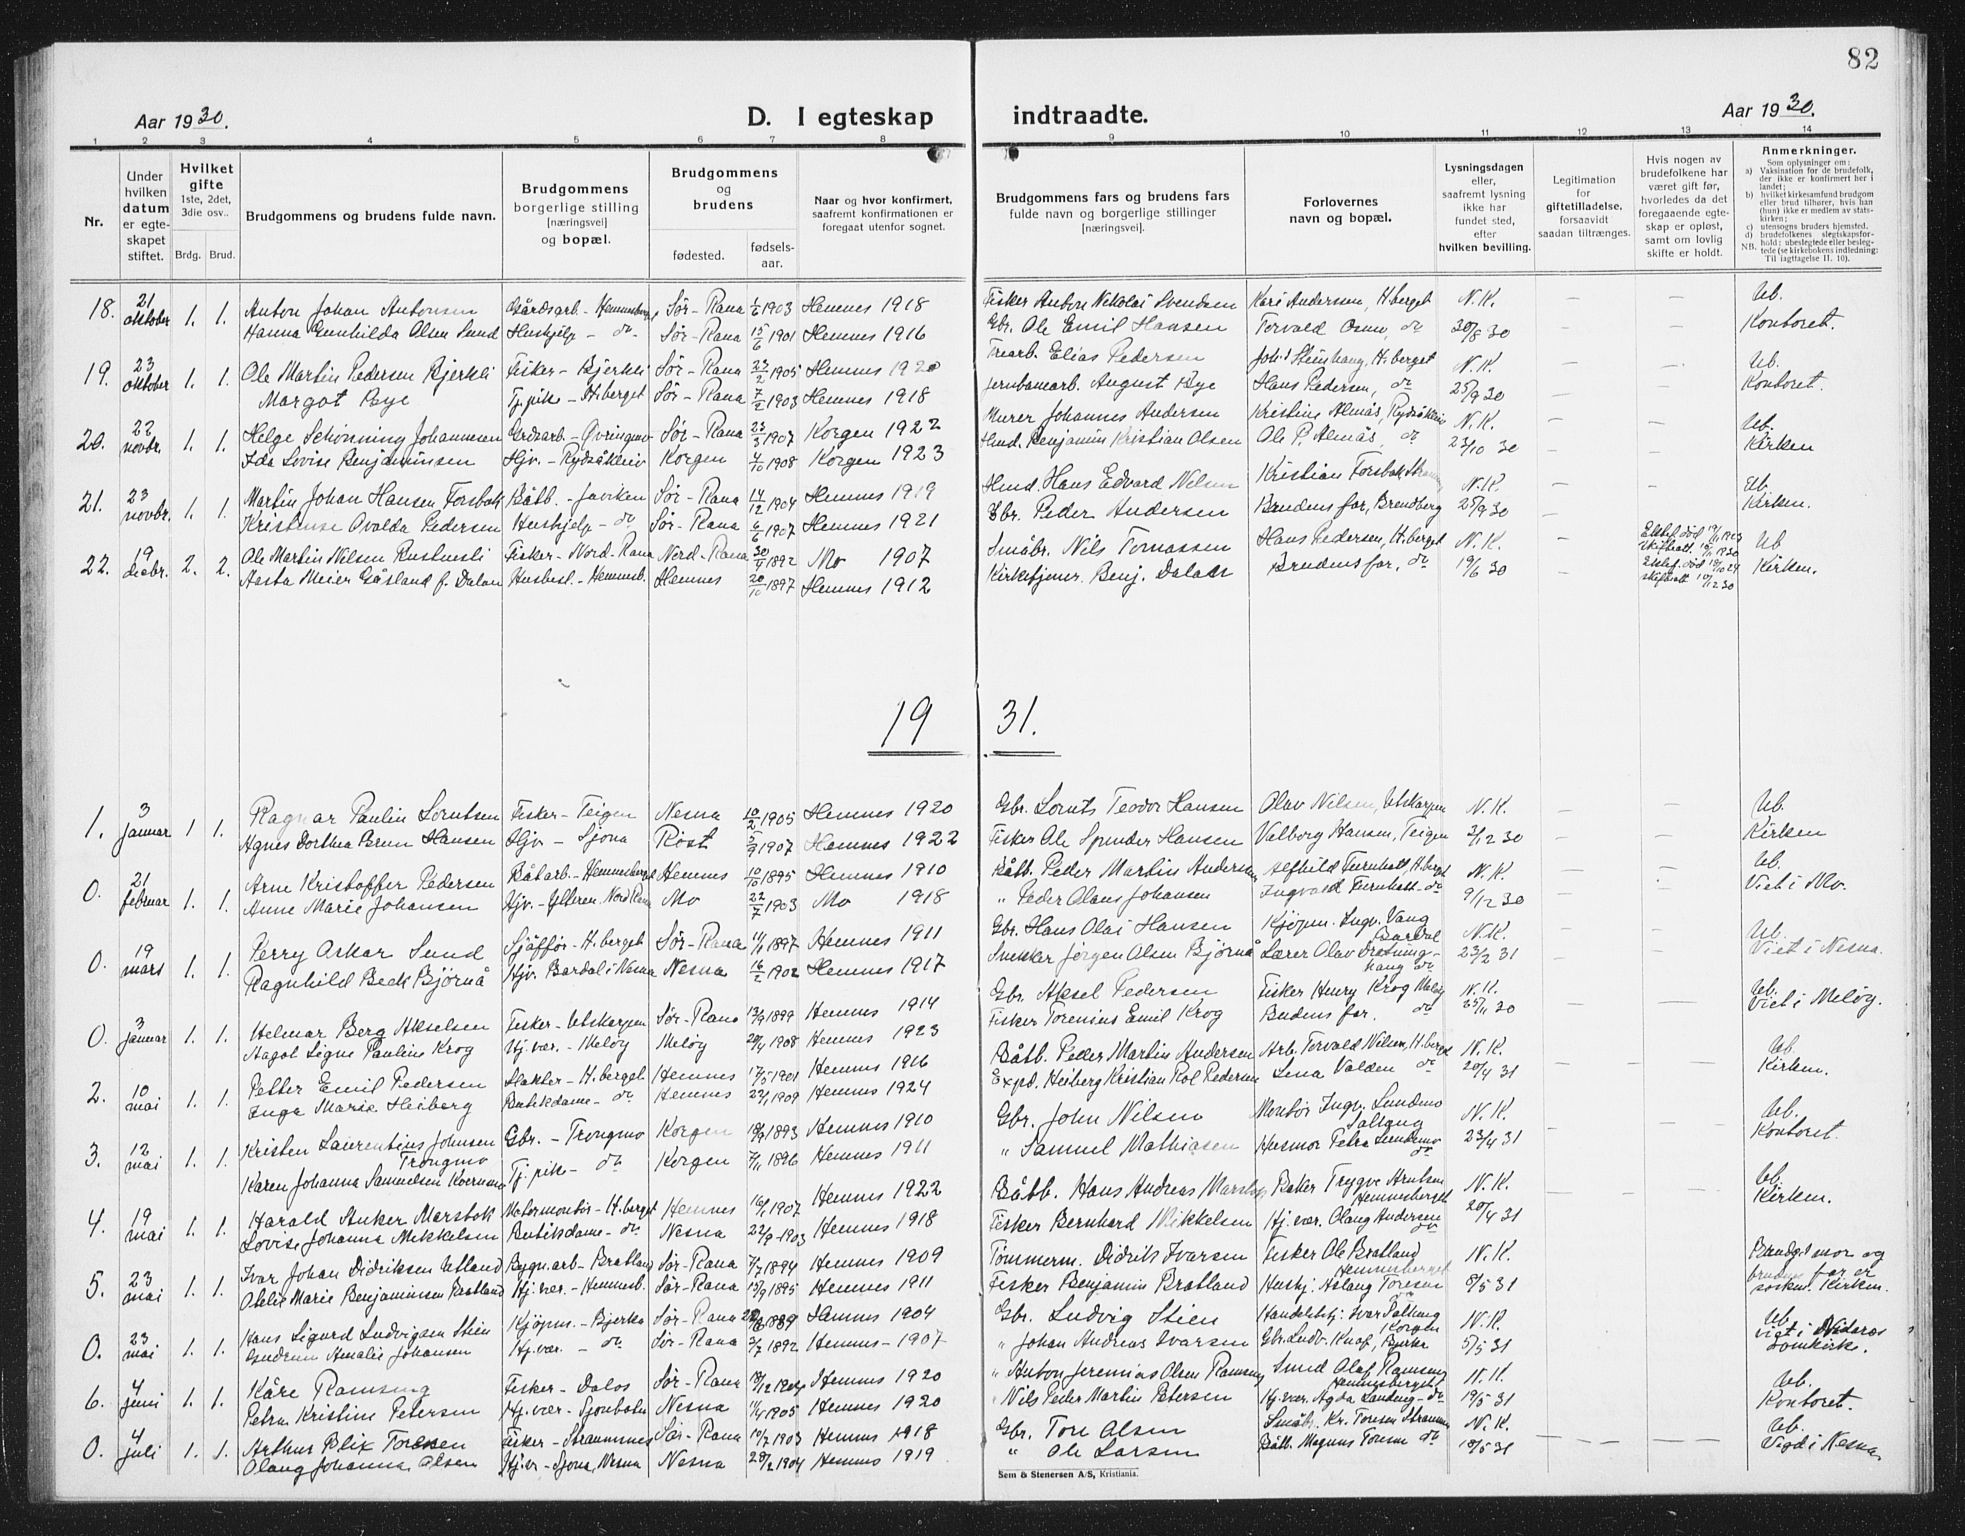 82
Aar 1930.
D. I egteskap indtraadte.
Aar 1930.
1 2 3 4 5 6 7 8 9 10 11 12 13 14
Nr.
Under hvilken datum er egteskapet stiftet.
Hvilket gifte 1ste, 2det, 3die osv..
Brdg. Brud.
Brudgommens og brudens fulde navn.
Brudgommens borgerlige stilling [næringsvei] og bopæl.
Brudgommens og brudens
fødested. fødselsaar.
Naar og hvor konfirmert, saafremt konfirmationen er foregaat utenfor sognet.
Brudgommens fars og brudens fars fulde navn og borgerlige stillinger [næringsvei].
Forlovernes navn og bopæl.
Lysningsdagen eller, saafremt lysning ikke har fundet sted, efter hvilken bevilling.
Legitimation for giftetilladelse. forsaavidt saadan tiltrænges.
Hvis nogen av brudefolkene har været gift før, hvorledes da det foregaaende egteskap er opløst, samt om lovlig skifte er holdt.
Anmerkninger.
Som oplysninger om:
a) Vaksination for de brudefolk, der ikke er konfirmert her i landet;
b) hvilket kirkesamfund brudgom eller brud tilhører, hvis han (hun) ikke er medlem av statskirken;
c) utensogns bruders hjemsted.
d) brudefolkenes slegtskapsforhold; ubeslegtede eller beslegtede (se kirkebokens indledning:
NB. Til iagttagelse II. 10).
18. 21 oktober 1. 1. Anton Johan Antonsen Gårdsarb. - Hemnesberget Sør-Rana 1/6 1903 Hemnes 1918 Fisker Anton Nikolai Svendsen Kari Andersen, H.berget N.K. — — — Ub.
Hanna Gunhilda Olsen Sund Hushjelp - do Sør-Rana 15/6 1901 Hemnes 1916 Gbr. Ole Emil Hansen Torvald do 20/8 30 Kontoret.
19. 23 oktober 1. 1. Ole Martin Pedersen Bjerkli Fisker - Bjerkli Sør-Rana 23/2 1905 Hemnes 1920 Trearb. Elias Pedersen Joh. Steinhaug, H.berget N.K. — — Ub.
Margot Bye Tj.pike - H.berget Sør-Rana 7/2 1903 Hemnes 1918 Jernbanearb. August Bye Hans Pedersen, do 25/9 30 Kontoret.
20. 22 novbr. 1. 1. Helge Schønning Johannesen Grdsarb - Øvringmo Sør-Rana 23/3 1907 Korgen 1922 Murer Johannes Andersen Kristine Almås, Rydsåkleiv N.K. — — Ub.
Ida Lovise Benjaminsen Hjv. - Rydsåkleiv Korgen 4/10 1908 Korgen 1923 Hmd. Benjamin Kristian Olsen Ole P. Almås, do 23/10 30 Kirken
21. 23 novbr. 1. 1. Martin Johan Hansen Forsbak Båtb. - Juviken Sør-Rana 14/12 1904 Hemnes 1919 Hmd. Hans Edvard Nilsen Kristian Forsbak, N.K. — — Ub.
Kristense Ovalda Pedersen Hushjelp - do Sør-Rana 6/6 1907 Hemnes 1921 Gbr. Peder Andersen Brudens far, Brendberg 25/9 30 Kirken.
22. 19 desbr. 2. 2. Ole Martin Nilsen Rushusli Fisker - Nord-Rana Nord-Rana 30/4 1892 Mo 1907 Småbr. Nils Tomassen Hans Pedersen, H.berget N.K. — Ub
Aasta Meier Gåsland f. Dalan Husbest. - Hemnesb. Hemnes 20/10 1897 Hemnes 1912 Kirketjener Benj. Dalan Brudens far, do 19/6 30 Kirken.
1931.
1. 3 januar 1 1. Ragnar Paulin Lorntsen Fisker - Teigen Nesna 10/2 1905 Hemnes 1920 Gbr. Lornts Teodor Hansen Olav Nilsen, Utskarpen N.K. — — Ub.
Agnes Dorthea Brun Hansen Hjv - Sjona Røst 5/9 1907 Hemnes 1922 Fisker Ole Spender Hansen Valborg Hansen, Teigen 2/12 30 Kirken
0. 21 februar 1. 1. Arne Kristoffer Pedersen Båtarb. - Hemnesberget Hemnes 10/10 1895 Hemnes 1910 Båtb. Peder Martin Andersen Alfhild Furuhatt, H.berget N.K. — Ub.
Anne Marie Johansen Hjv. - Ytteren Nord Rana Mo 22/7 1903 Mo 1918 " Peder Olaus Johansen Ingvald Furuhatt do 9/12 30 Viet i Mo.
0. 19 mars 1. 1. Perry Oskar Sund Sjåffør - H.berget Sør-Rana 11/1 1897 Hemnes 1911 Gbr. Hans Olai Hansen Kjøpm. Ingv. Vang Bardal N.K. — — Ub.
Ragnhild Beck Bjørnå Hjv. Bardal i Nesna Nesna 16/2 1902 Hemnes 1917 Snekker Jørgen Olsen Bjørnå Lærer Olav Dronninghaug do 23/2 31 Viet i Nesna.
0. 3 januar 1. 1. Helmar Berg Akselsen Fisker - Utskarpen Sør-Rana 13/9 1899 Hemnes 1914 Gbr. Aksel Pedersen Fisker Henry Krog Meløy N.K. — — — Ub.
Aagot Signe Pauline Krog Hj.vær. - Meløy Meløy 20/4 1908 Hemnes 1923 Fisker Torenius Emil Krog Brudens far. do 25/11 30 Viet i Meløy.
2. 10 mai 1. 1. Petter Emil Pedersen Slakter - H.berget Hemnes 17/5 1901 Hemnes 1916 Båtb. Peder Martin Andersen Arb. Torvald Nilsen, H.berget N.K. — — — Ub.
Inga Marie Heiberg Butikdame - do Hemnes 22/1 1909 Hemnes 1924 Exped. Heiberg Kristian Rol Pedersen Lina Valden do 20/4 31 Kirken.
3. 12 mai 1. 1. Kristen Laurentius Johnsen Trongmo Gbr. - Trongmo Korgen 18/9 1893 Hemnes 1910 Gbr. John Nilsen Montør Ingv. Lundmo Saltaug N.K. Ub.
Karen Johanna Samuelsen Tj.pike - do Korgen 7/11 1896 Hemnes 1911 " Samuel Mathiasen Husmor Petra Lundmo do 23/4 31 Kontoret.
4. 19 mai 1. 1. Harald Anker Marsbok Motormontør - H.berget Hemnes 16/1 1907 Hemnes 1922 Båtb. Hans Andreas Marsbok Baker Trygve Arntsen Hemnesberget N.K. — — — Ub.
Lovise Johanna Mikkelsen Butikdame - do Nesna 22/9-1903 Hemnes 1918 Fisker Bernhard Mikkelsen Hj.vær. Olaug Andersen do 20/4 31 Kirken.
5. 23 mai 1. 1. Ivar Johan Didriksen Utland Bygn.arb - Bratland Sør-Rana 7/7 1894 Hemnes 1909 Tømmerm. Didrik Ivarsen Fisker Ole Bratland Hemnesberget N.K. Brudgs mor og
Otelie Marie Benjaminsen Bratland Hj.vær. - Hemnesb. Sør-Rana 15/9 1895 Hemnes 1911 Fisker Benjamin Bratland Hushj. Aslaug Toresen do 8/5 31 brudens far er søskend. Kirken.
0. 23 mai 1. 1. Hans Sigurd Ludvigsen Stien Kjøpm. - Bjerka Sør-Rana 1889 Hemnes 1904 Gbr. Ludvig Stien Handelsbtj: Ivar Saltaug Korgen N.K. Ub.
Gudrun Amalie Johansen Hj.vær. - do Sør-Rana 3/7 1892 Hemnes - 1907 " Johan Andreas Ivarsen Gbr. Ludv. Knaf, Bjerka 5/5 31 Vigt i Nidaros domkirke.
6. 4 juni 1. 1. Kåre Ramseng Fisker - Dalos Sør-Rana 18/12 1904 Hemnes 1920 " Anton Jeremias Olsen Ramseng Smed Olaf Ramseng Hemnesberget N.K. Ub.
Petra Kristine Petersen Hj.vær - Sjonbotn Nesna 11/4 1905 Hemnes 1920 " Nils Peder Martin Petersen Hj.vær Agda do 19/5 31 Kontoret.
0. 4 juli 1. 1. Arthur Blix Toresen Fisker - Straumnes Sør-Rana 10/7 1903 Hemnes 1918 Gbr. Tore Olsen Småb. Kr. Toresen Straumnes N.K. Ub.
Olaug Johanna Olsen Hjv - Sjona, Nesna Nesna 20/2 1904 Hemnes 1919 " Ole Larsen Båtb. Magnus Toresen do 18/5 31 — — — Vigd i Nesna
Sem & Stenersen A/S, Kristiania.